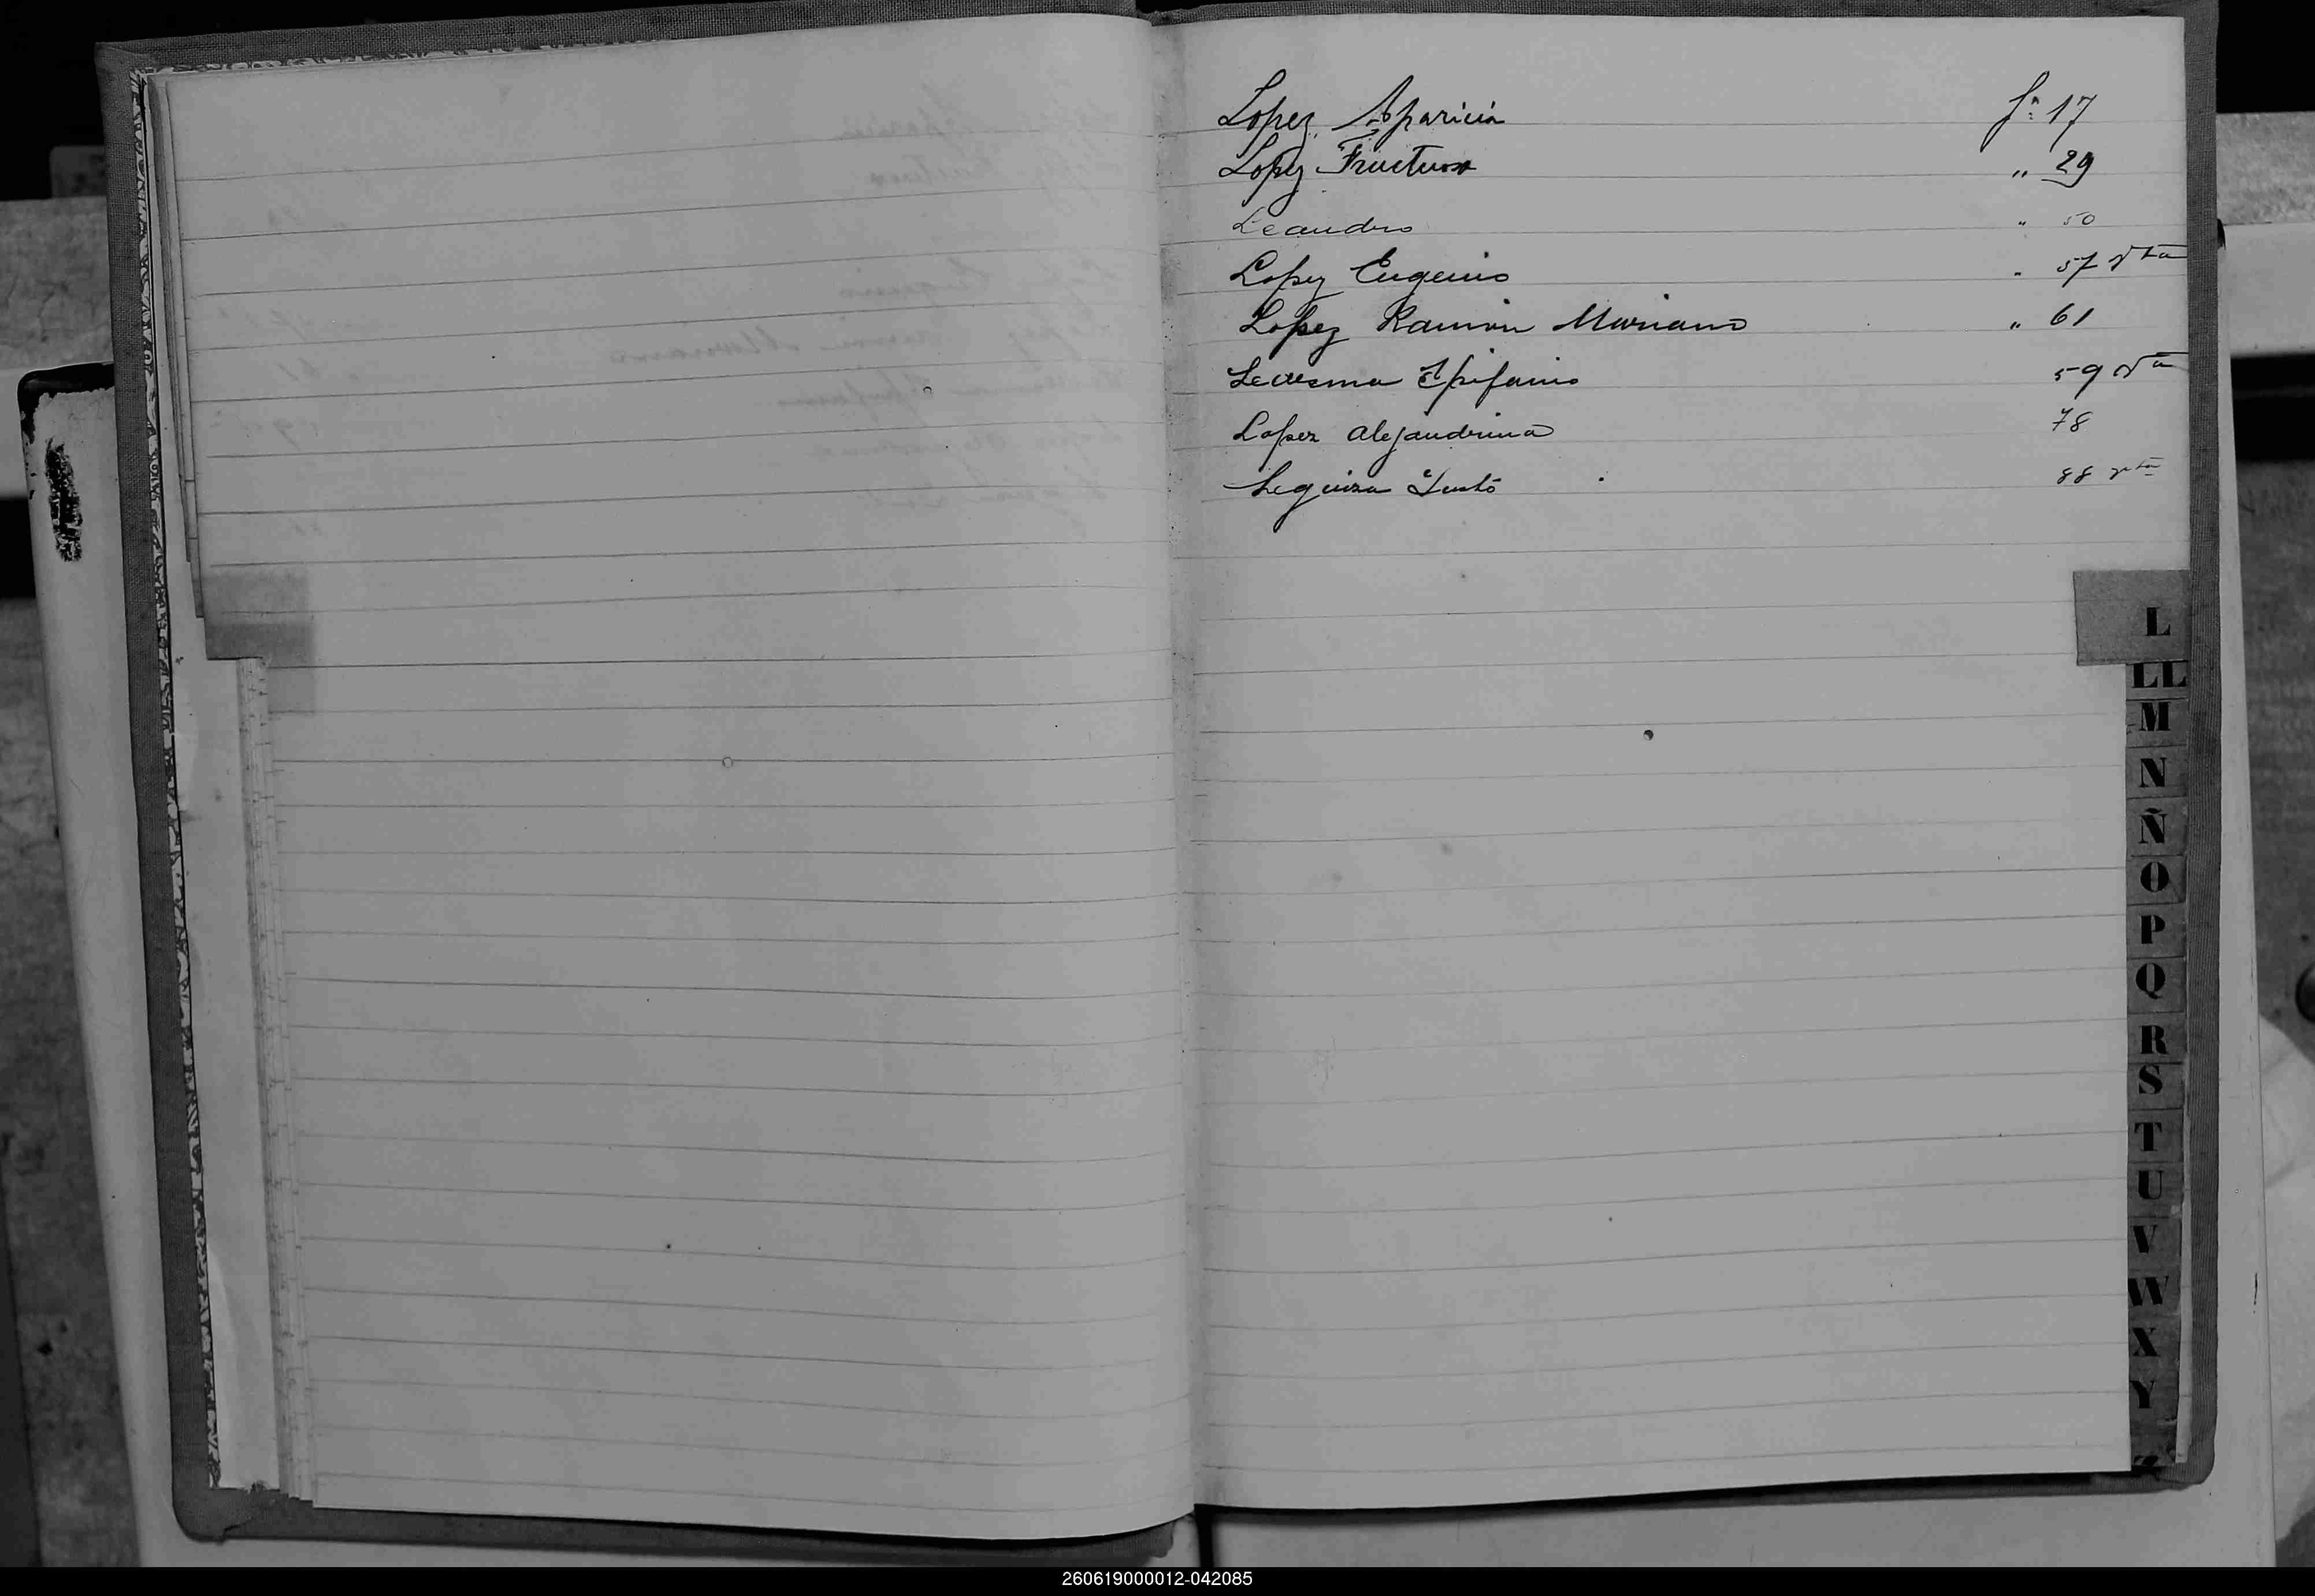 Lopez Aparicia fs 17
Lopez Fructuoso " 29
Leandro " 50
Lopez Eugenio " 57 vta
Lopez Ramón Mariano " 61
Ledesma Epifanio 59 vta
Lopez Alejandrina 78
Leguiza Justo 88 vta
L
LL
M
N
Ñ
O
P
Q
R
S
T
U
V
W
X
Y
260619000012-042085